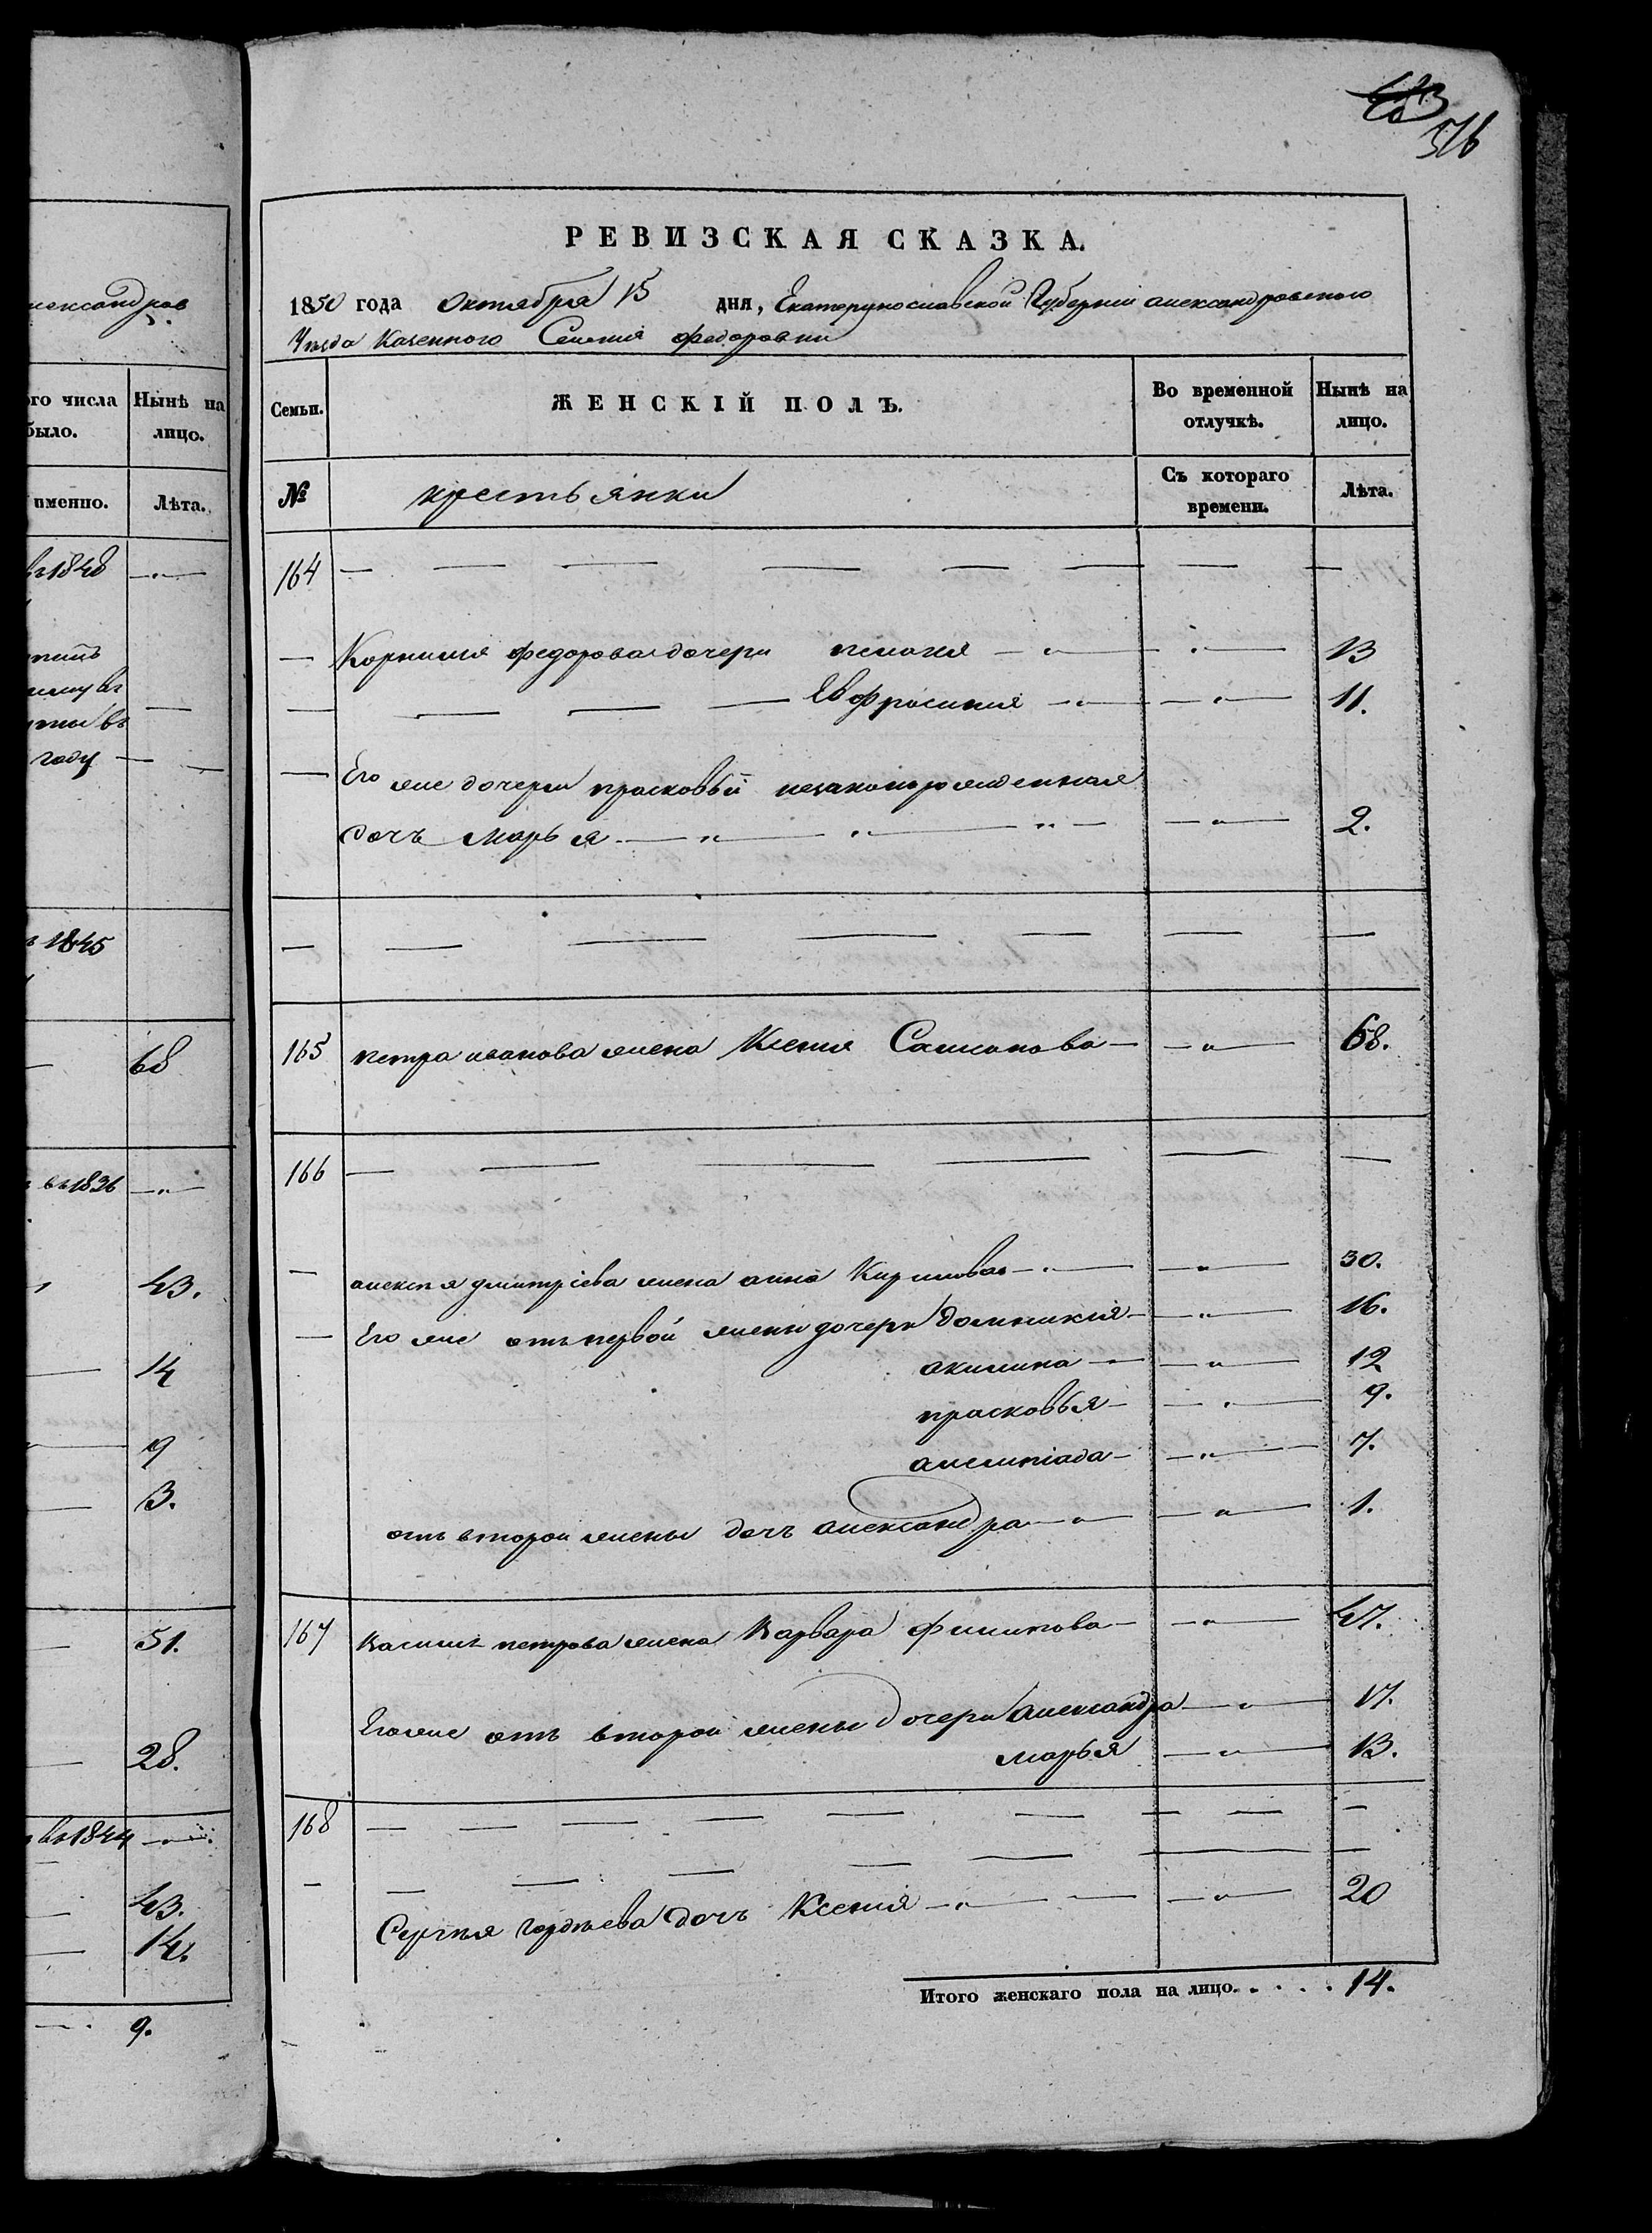 516
александров
ого числа было. Нынѣ на лицо.
именно. Лѣта.
въ 1848
году
1845
68
въ 1836
43.
14
9
3.
51.
28.
въ 1844
43.
14.
9.
РЕВИЗСКАЯ СКАЗКА.
1850 года Октября 15 дня, Екатеринославской Губерніи александровского
Уезда Казенного Селенія федоровки
Семьи. ЖЕНСКІЙ ПОЛЪ. Во временной отлучкѣ. Нынѣ на лицо.
№ крестьянки Съ котораго времени. Лѣта.
164
Корнилія федорова дочери пелагея 13
Евфросинія 11.
Его же дочери прасковьи незаконнорожденная
дочь марья 2.
165 петра иванова жена Ксенія Самсонова 68.
166
алексѣя дмитріева жена анна Кирилова 30.
Его же отъ первой жены дочери домникія 16.
акилина 12
прасковья 9.
алимпіада 7.
отъ второй жены дочь александра 1.
167 василія петрова жена Варвара филипова 47.
Его же отъ второй жены дочери александра 17.
марья 13.
168
Сергѣя гордѣева дочь Ксенія 20
Итого женскаго пола на лицо. . . . . 14.